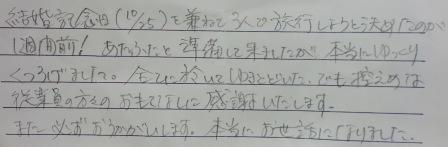 結婚記念日(10/25)を兼ねて3人で旅行しようと決めたのが
1週間前! あたふたと準備して来ましたが本当にゆっくり
くつろげました。全てに於いてゆきとどいた、でも控えめな
従業員の方々のおもてなしに感謝いたします。
また必ずおうかがいします。本当にお世話になりました。